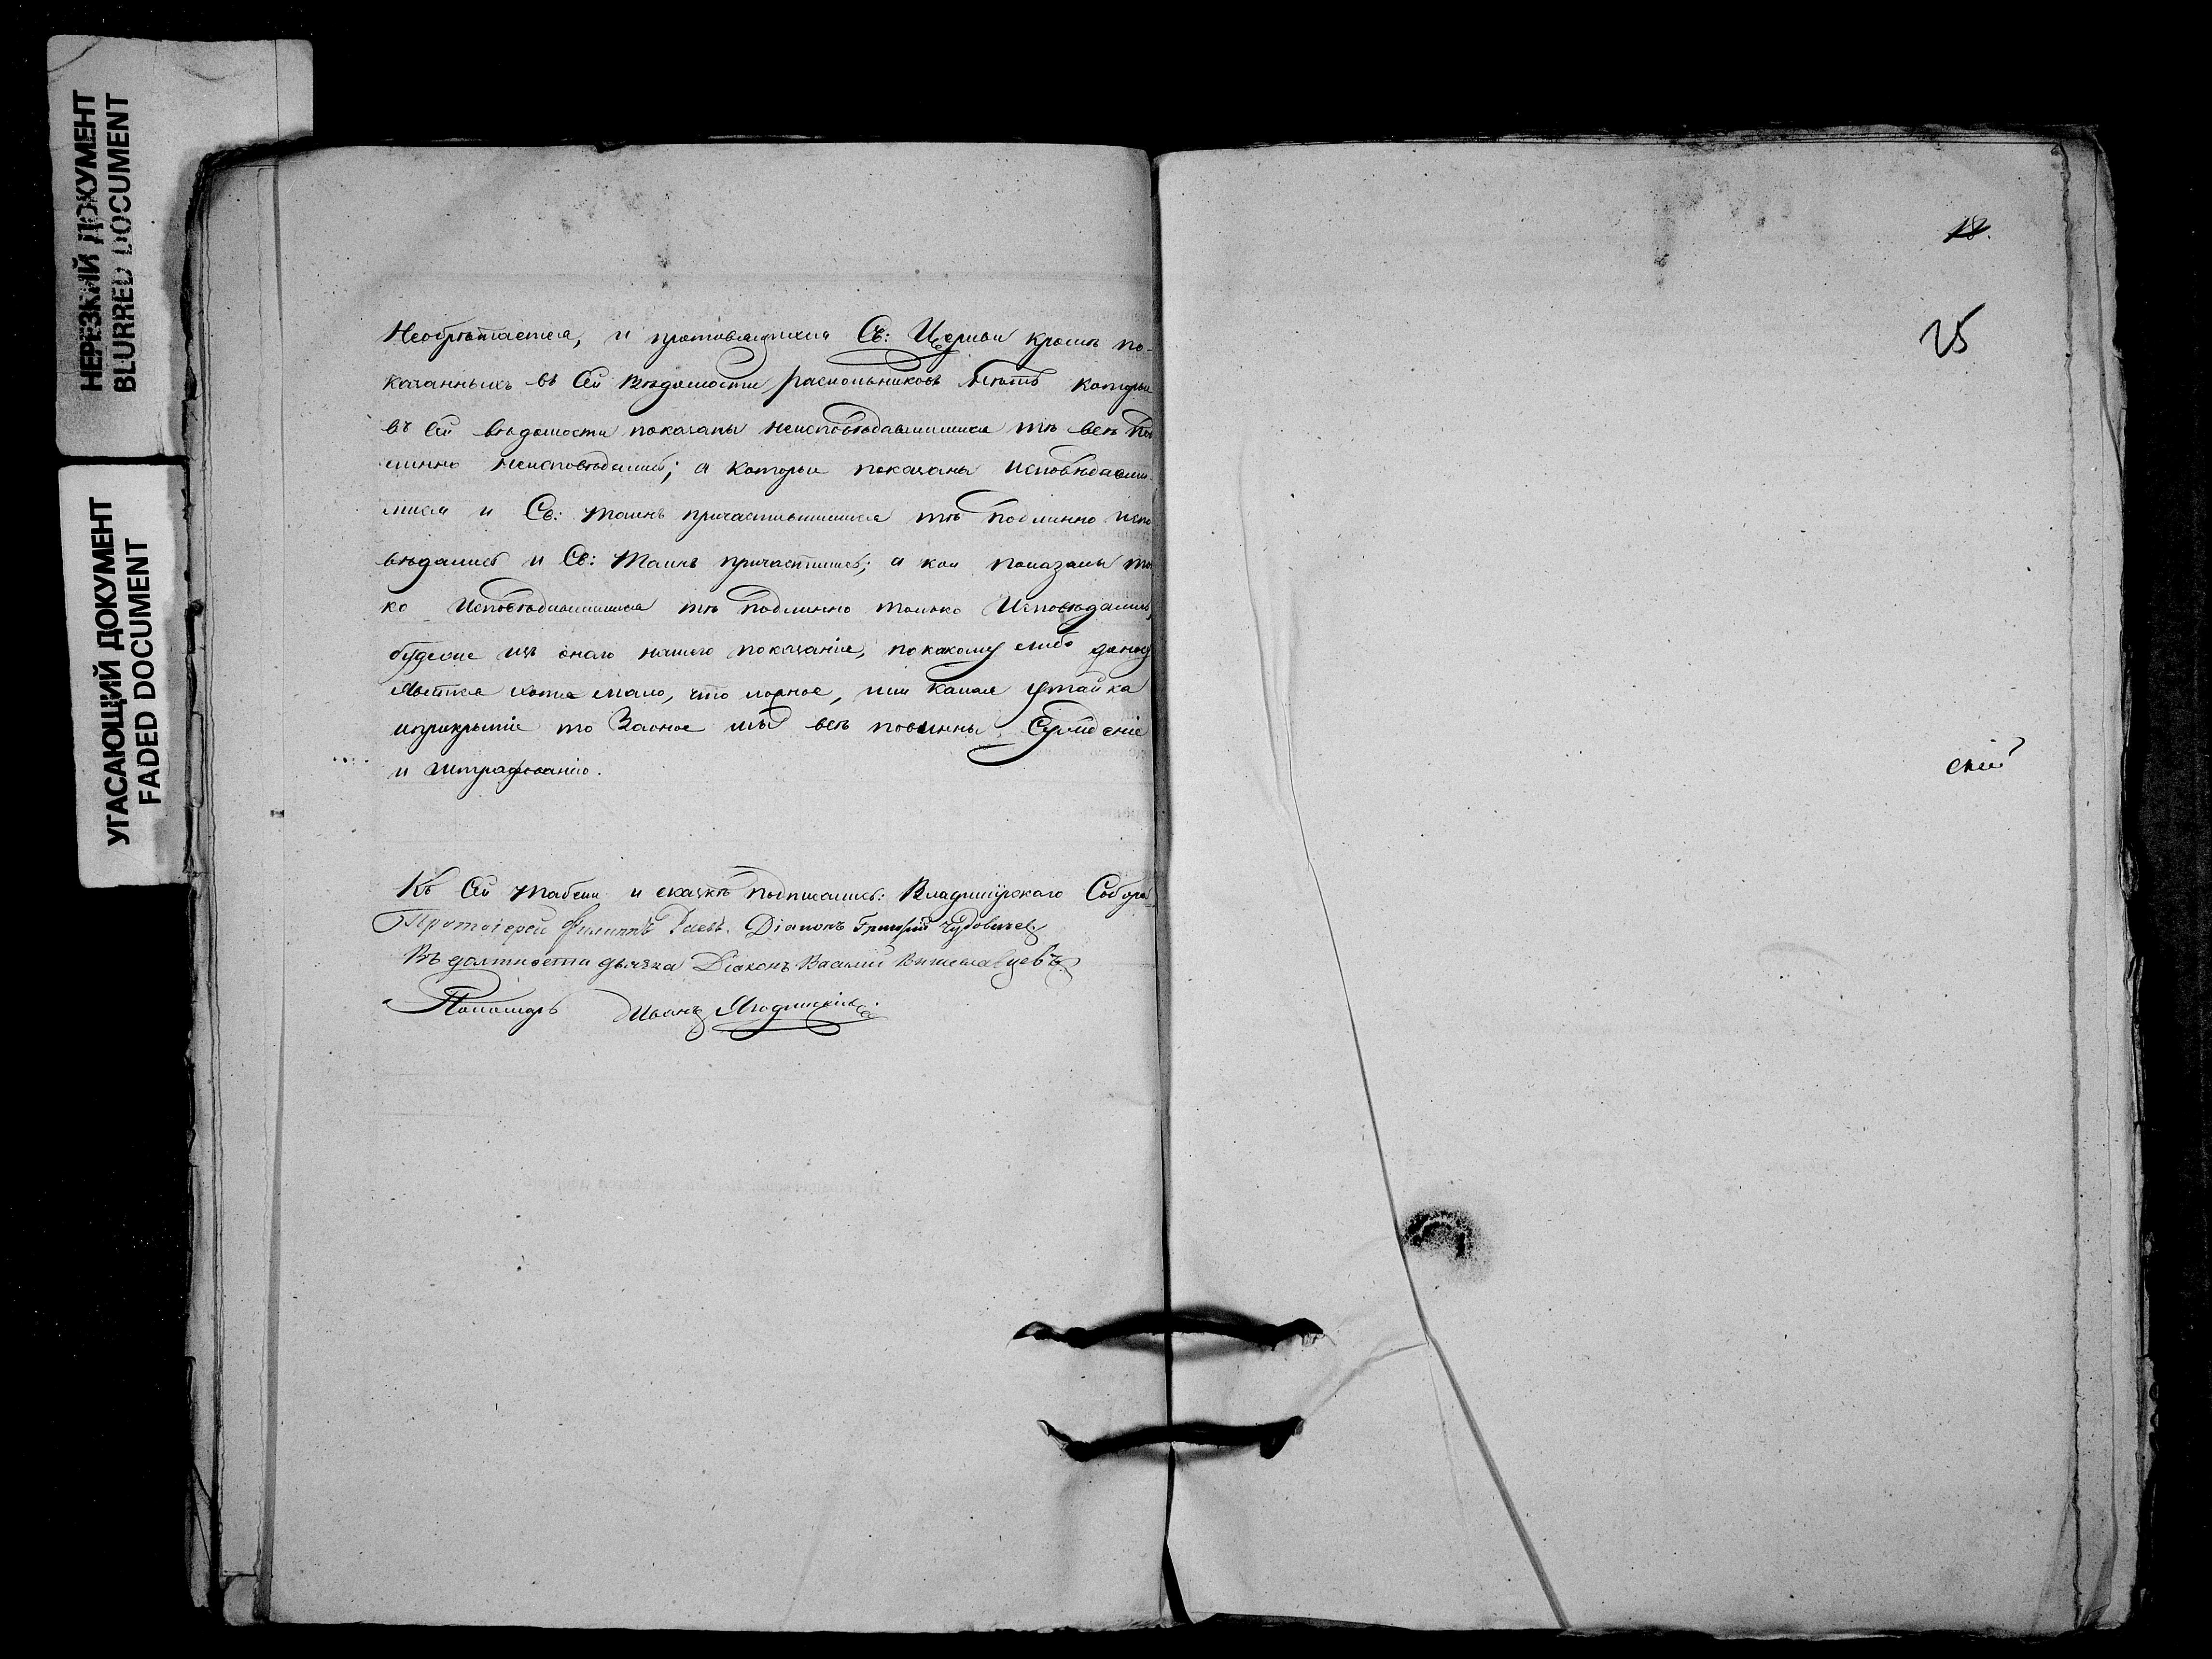 НЕРЕЗКИЙ ДОКУМЕНТ
BLURRED DOCUMENT
УГАСАЮЩИЙ ДОКУМЕНТ
FADED DOCUMENT
Необрѣтается, и противящихся Св: Церкви кромѣ по-
казанныхъ въ сей вѣдомости раскольниковъ нѣтъ которыи
въ сей вѣдомости показаны неисповѣдавшимися тѣ всѣ по
длинно неисповѣдались; а которыи показаны исповѣдавши
мися и Св: Таинъ причастившимися тѣ подлинно испо
вѣдались и Св: Таинъ причастились; а кои показаны то
ко исповѣдавшимися тѣ подлинно только исповѣдались,
будеже изъ онаго нашего показанія, по какому либо доносу
явится хотя мало, что ложное, или какая утайка
и прикрытіе то за оное мы всѣ повинны
и штрафованію.
Къ сей табели и сказкѣ подписались: Владимірскаго Собора
Протоіерей Филиппъ Діаконъ Григорій
Въ должности дьячка Діаконъ Василій Вышеславцевъ
Пономарь Иванъ Ягодинскій
18.
25
скій